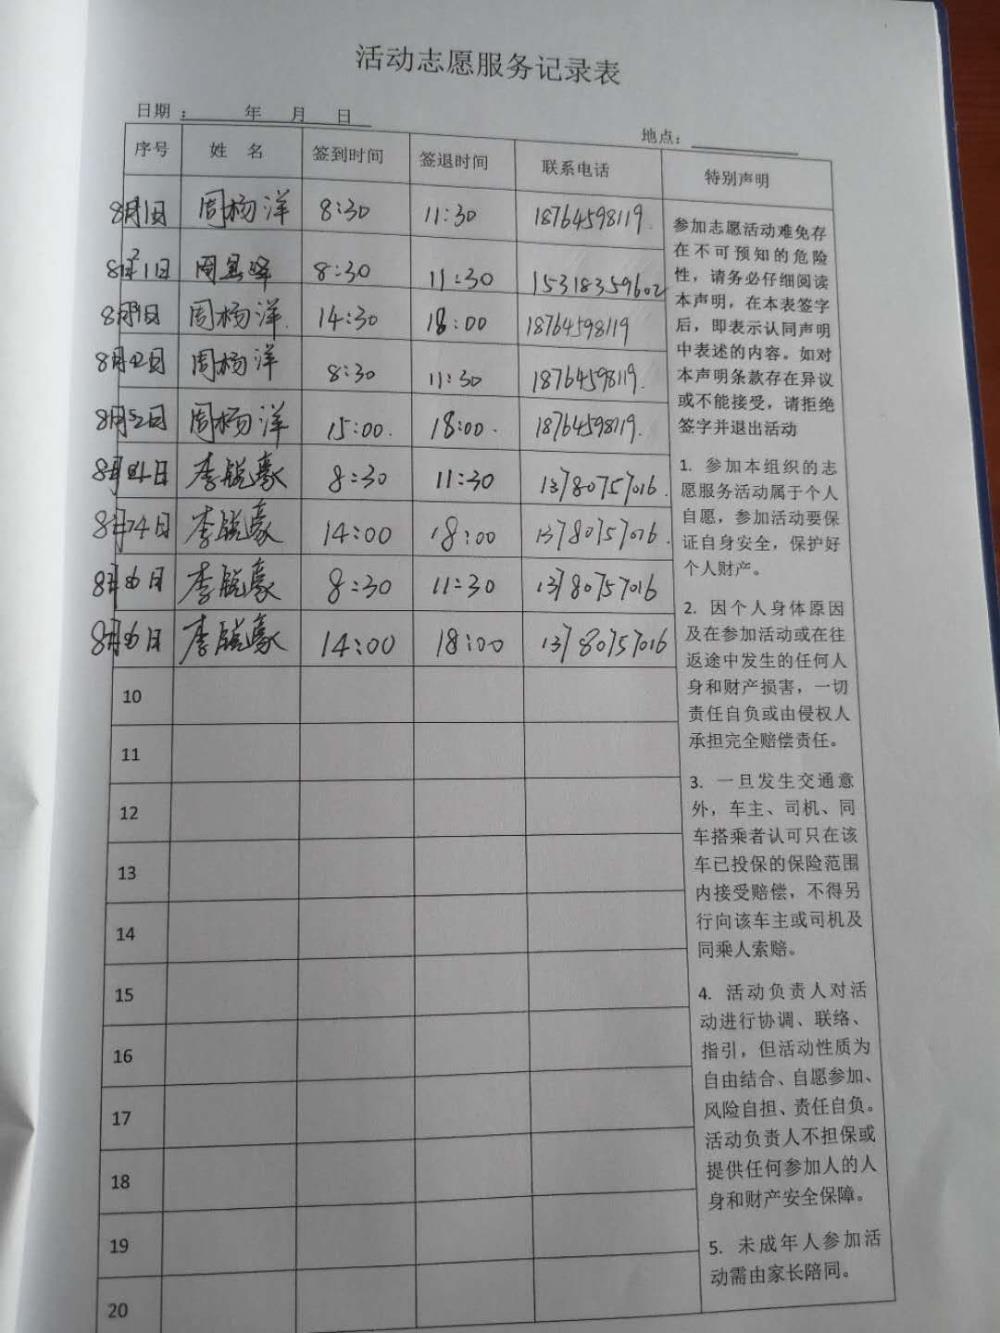 活动志愿服务记录表
日期： 年 月 日
地点：
序号 姓 名 签到时间 签退时间 联系电话 特别声明
8月1日 周杨洋 8:30 11:30 18764598119.
8:30 11:30 15318359602
周杨洋. 14:30 18:00 18764598119
周杨洋 8:30 11:30 18764598119.
周杨洋 15:00. 18:00. 18764598119.
李锐豪 8:30 11:30 13780757016.
李锐豪 14:00 18:00 13780757016.
李锐豪 8:30 11:30 13780757016
李锐豪 14:00 18:00 13780757016
10
11
12
13
14
15
16
17
18
19
20
参加志愿活动难免存
在不可预知的危险
性，请务必仔细阅读
本声明，在本表签字
后，即表示认同声明
中表述的内容。如对
本声明条款存在异议
或不能接受，请拒绝
签字并退出活动
1. 参加本组织的志
愿服务活动属于个人
自愿，参加活动要保
证自身安全，保护好
个人财产。
2. 因个人身体原因
及在参加活动或在往
返途中发生的任何人
身和财产损害，一切
责任自负或由侵权人
承担完全赔偿责任。
3. 一旦发生交通意
外，车主、司机、同
车搭乘者认可只在该
车已投保的保险范围
内接受赔偿，不得另
行向该车主或司机及
同乘人索赔。
4. 活动负责人对活
动进行协调、联络、
指引，但活动性质为
自由结合、自愿参加、
风险自担、责任自负。
活动负责人不担保或
提供任何参加人的人
身和财产安全保障。
5. 未成年人参加活
动需由家长陪同。